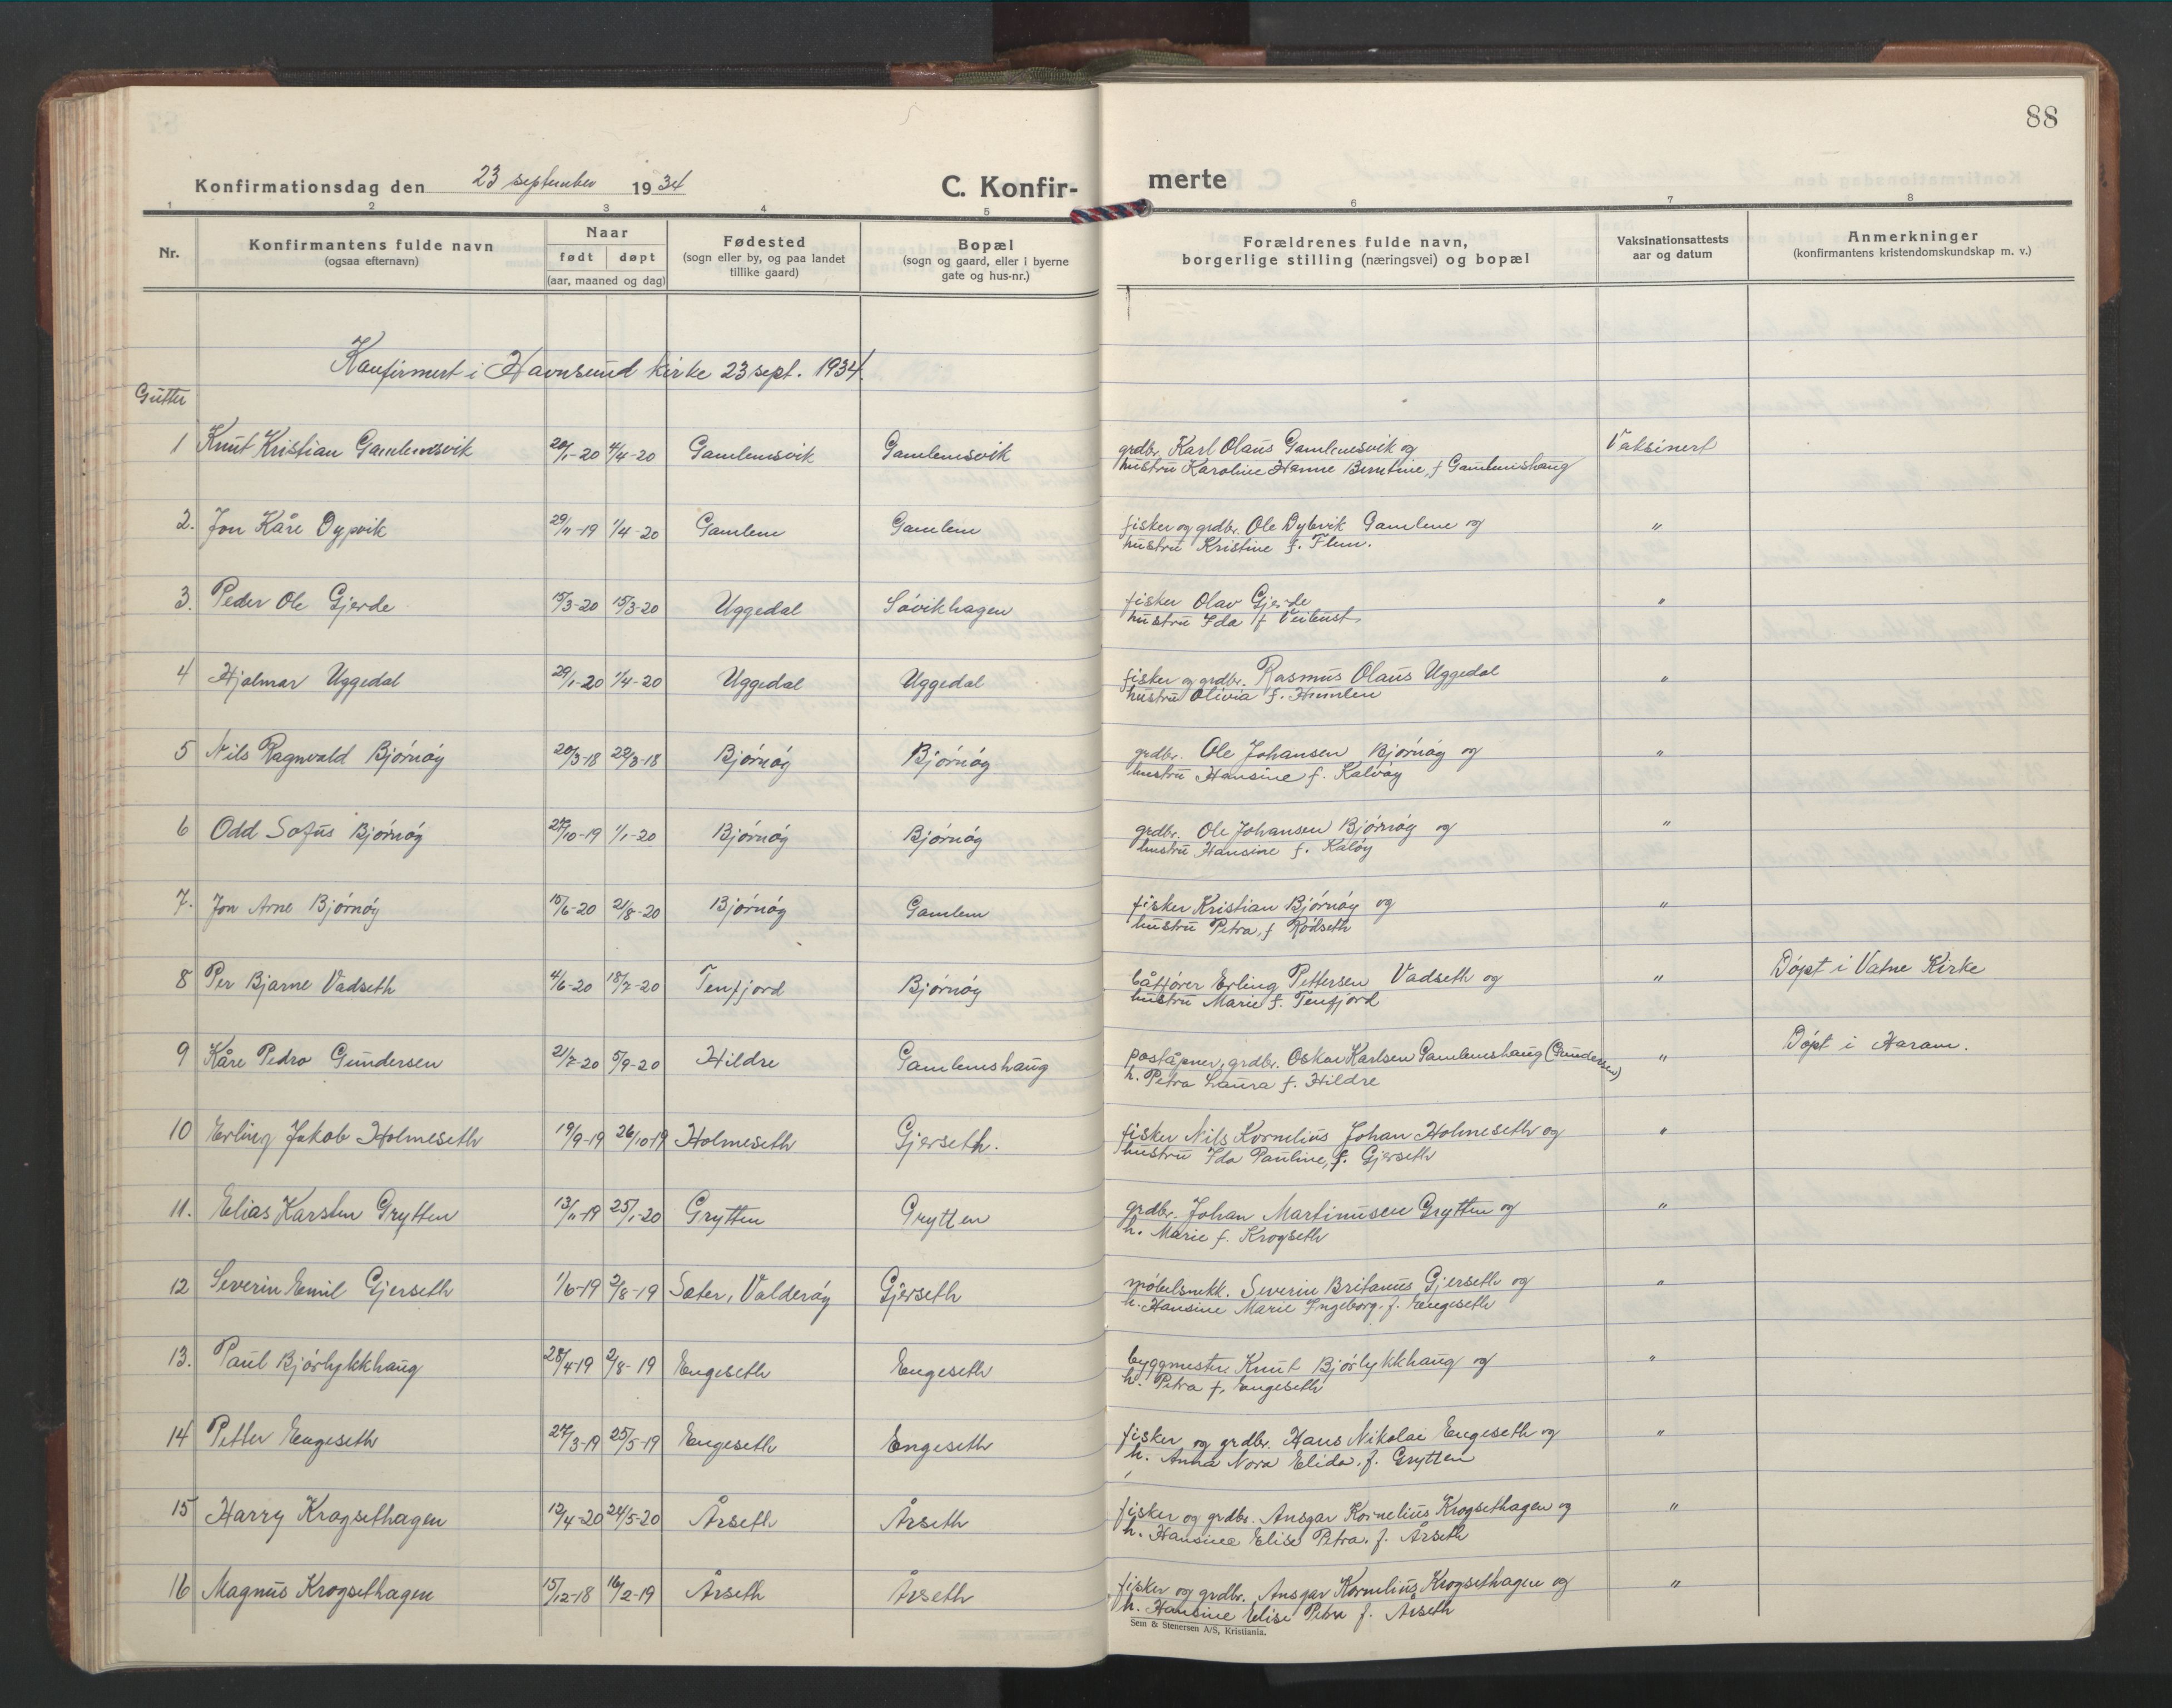 88
Konfirmationsdag den 23 september 1934 C. Konfir- merte
1 2 3 4 5 6 7 8
Nr. Konfirmantens fulde navn (ogsaa efternavn) Naar født døpt (aar, maaned og dag) Fødested (sogn eller by, og paa landet tillike gaard) Bopæl (sogn og gaard, eller i byerne gate og hus-nr.) Forældrenes fulde navn, borgerlige stilling (næringsvei) og bopæl Vaksinationsattests aar og datum Anmerkninger (konfirmantens kristendomskundskap m. v.)
Konfirmert i Havnsund kirke 23 sept. 1934.
Gutter
1 Knut Kristian Gamlemsvik 20/1-20 4/4-20 Gamlemsvik Gamlemsvik grdbr. Karl Olaus Gamlemsvik og Vaksinert
hustru Karoline Hanne Berntine, f Gamlemshaug
2. Jon Kåre Dypvik 29/11-19 1/4-20 Gamlem Gamlem fisker og grdbr. Ole Dybvik Gamlem og "
hustru Kristine f. Flem.
3. Peder Ole Gjerde 15/3-20 Uggedal Søvikhagen fisker Olav Gjerde "
hustru Ida f
4 Hjalmar Uggedal 29/1-20 1/4-20 Uggedal Uggedal fisker og grdbr. Rasmus Olaus Uggedal "
hustru Olivia f. Humlen
5 Nils Ragnvald Bjørnøy 20/3-18 29/3-18 Bjørnøy Bjørnøy grdbr. Ole Johansen Bjørnøy og "
hustru Hansine f. Kalvøy
6 Odd Sofus Bjørnøy 1/1-20 Bjørnøy Bjørnøy grdbr. Ole Johansen Bjørnøy og "
hustru Hansine f. Kaløy
7. Jon Arne Bjørnøy 15/6-20 21/8-20 Bjørnøy Gamlem fisker Kristian Bjørnøy og "
hustru Petra, f Rødseth
8 Per Bjarne Vadseth 4/6-20 18/7-20 Tenfjord Bjørnøy båtfører Erling Pettersen Vadseth og " Døpt i Vatne Kirke
hustru Marie f. Tenfjord
9 Kåre Pedro Gundersen 21/7-20 5/9-20 Hildre Gamlemshaug poståpner, grdbr. Oskar Karlsen Gamlemshaug (Gundersen) " Døpt i Haram.
h. Petra Laura f. Hildre
10 Erling Jakob Holmeseth 19/9-19 26/10-19 Holmeseth Gjerseth. fisker Nils Kornelius Johan Holmeseth og "
hustru Ida Pauline, f. Gjerseth
11. Elias Karsten Grytten 13/11-19 25/1-20 Grytten Grytten grdbr. Johan Martinusen Grytten og "
h. Marie f. Krogseth
12 Severin Emil Gjerseth 1/6-19 2/8-19 Sæter, Valderøy Gjerseth møbelsnekk. Severin Britanus Gjerseth og "
h. Hansine Marie Ingeborg. f. Engeseth
13. Paul Bjørlykkhaug 28/4-19 2/8-19 Engeseth Engeseth byggmester Knut Bjørlykkhaug og "
h. Petra f. Engeseth
14 Petter Engeseth 27/3-19 25/5-19 Engeseth Engeseth fisker og grdbr. Hans Nikolai Engeseth og "
h. Anna Nora Elida. f. Grytten
15 Harry Krogsethagen 12/4-20 24/5-20 Årseth Årseth fisker og grdbr. Ansgar Kornelius Krogsethagen og "
h. Hansine Elise Petra. f. Årseth
16 Magnus Krogsethagen 15/12-18 16/2-19 Årseth Årseth fisker og grdbr. Ansgar Kornelius Krogsethagen og "
h. Hansine Elise Petra f. Årseth
Sem & Stenersen A/S, Kristiania.